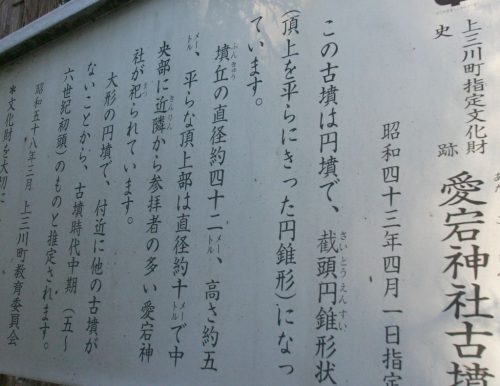 上三川町指定文化財
史跡 愛宕神社古墳
昭和四十三年四月一日指定
この古墳は円墳で、截頭円錐形状
さいとうえんすい
(頂上を平らにきった円錐形)になっ
ています。
墳丘の直径約四十二メートル、高さ約五
ふんきゅう
メートル、平らな頂上部は直径約十メートルで中
央部に近隣から参拝者の多い愛宕神
きんりん
社が祀られています。
まつ
大形の円墳で、付近に他の古墳が
ないことから、古墳時代中期(五〜
六世紀初頭)のものと推定されます。
昭和五十八年三月 上三川町教育委員会
*文化財を大切に